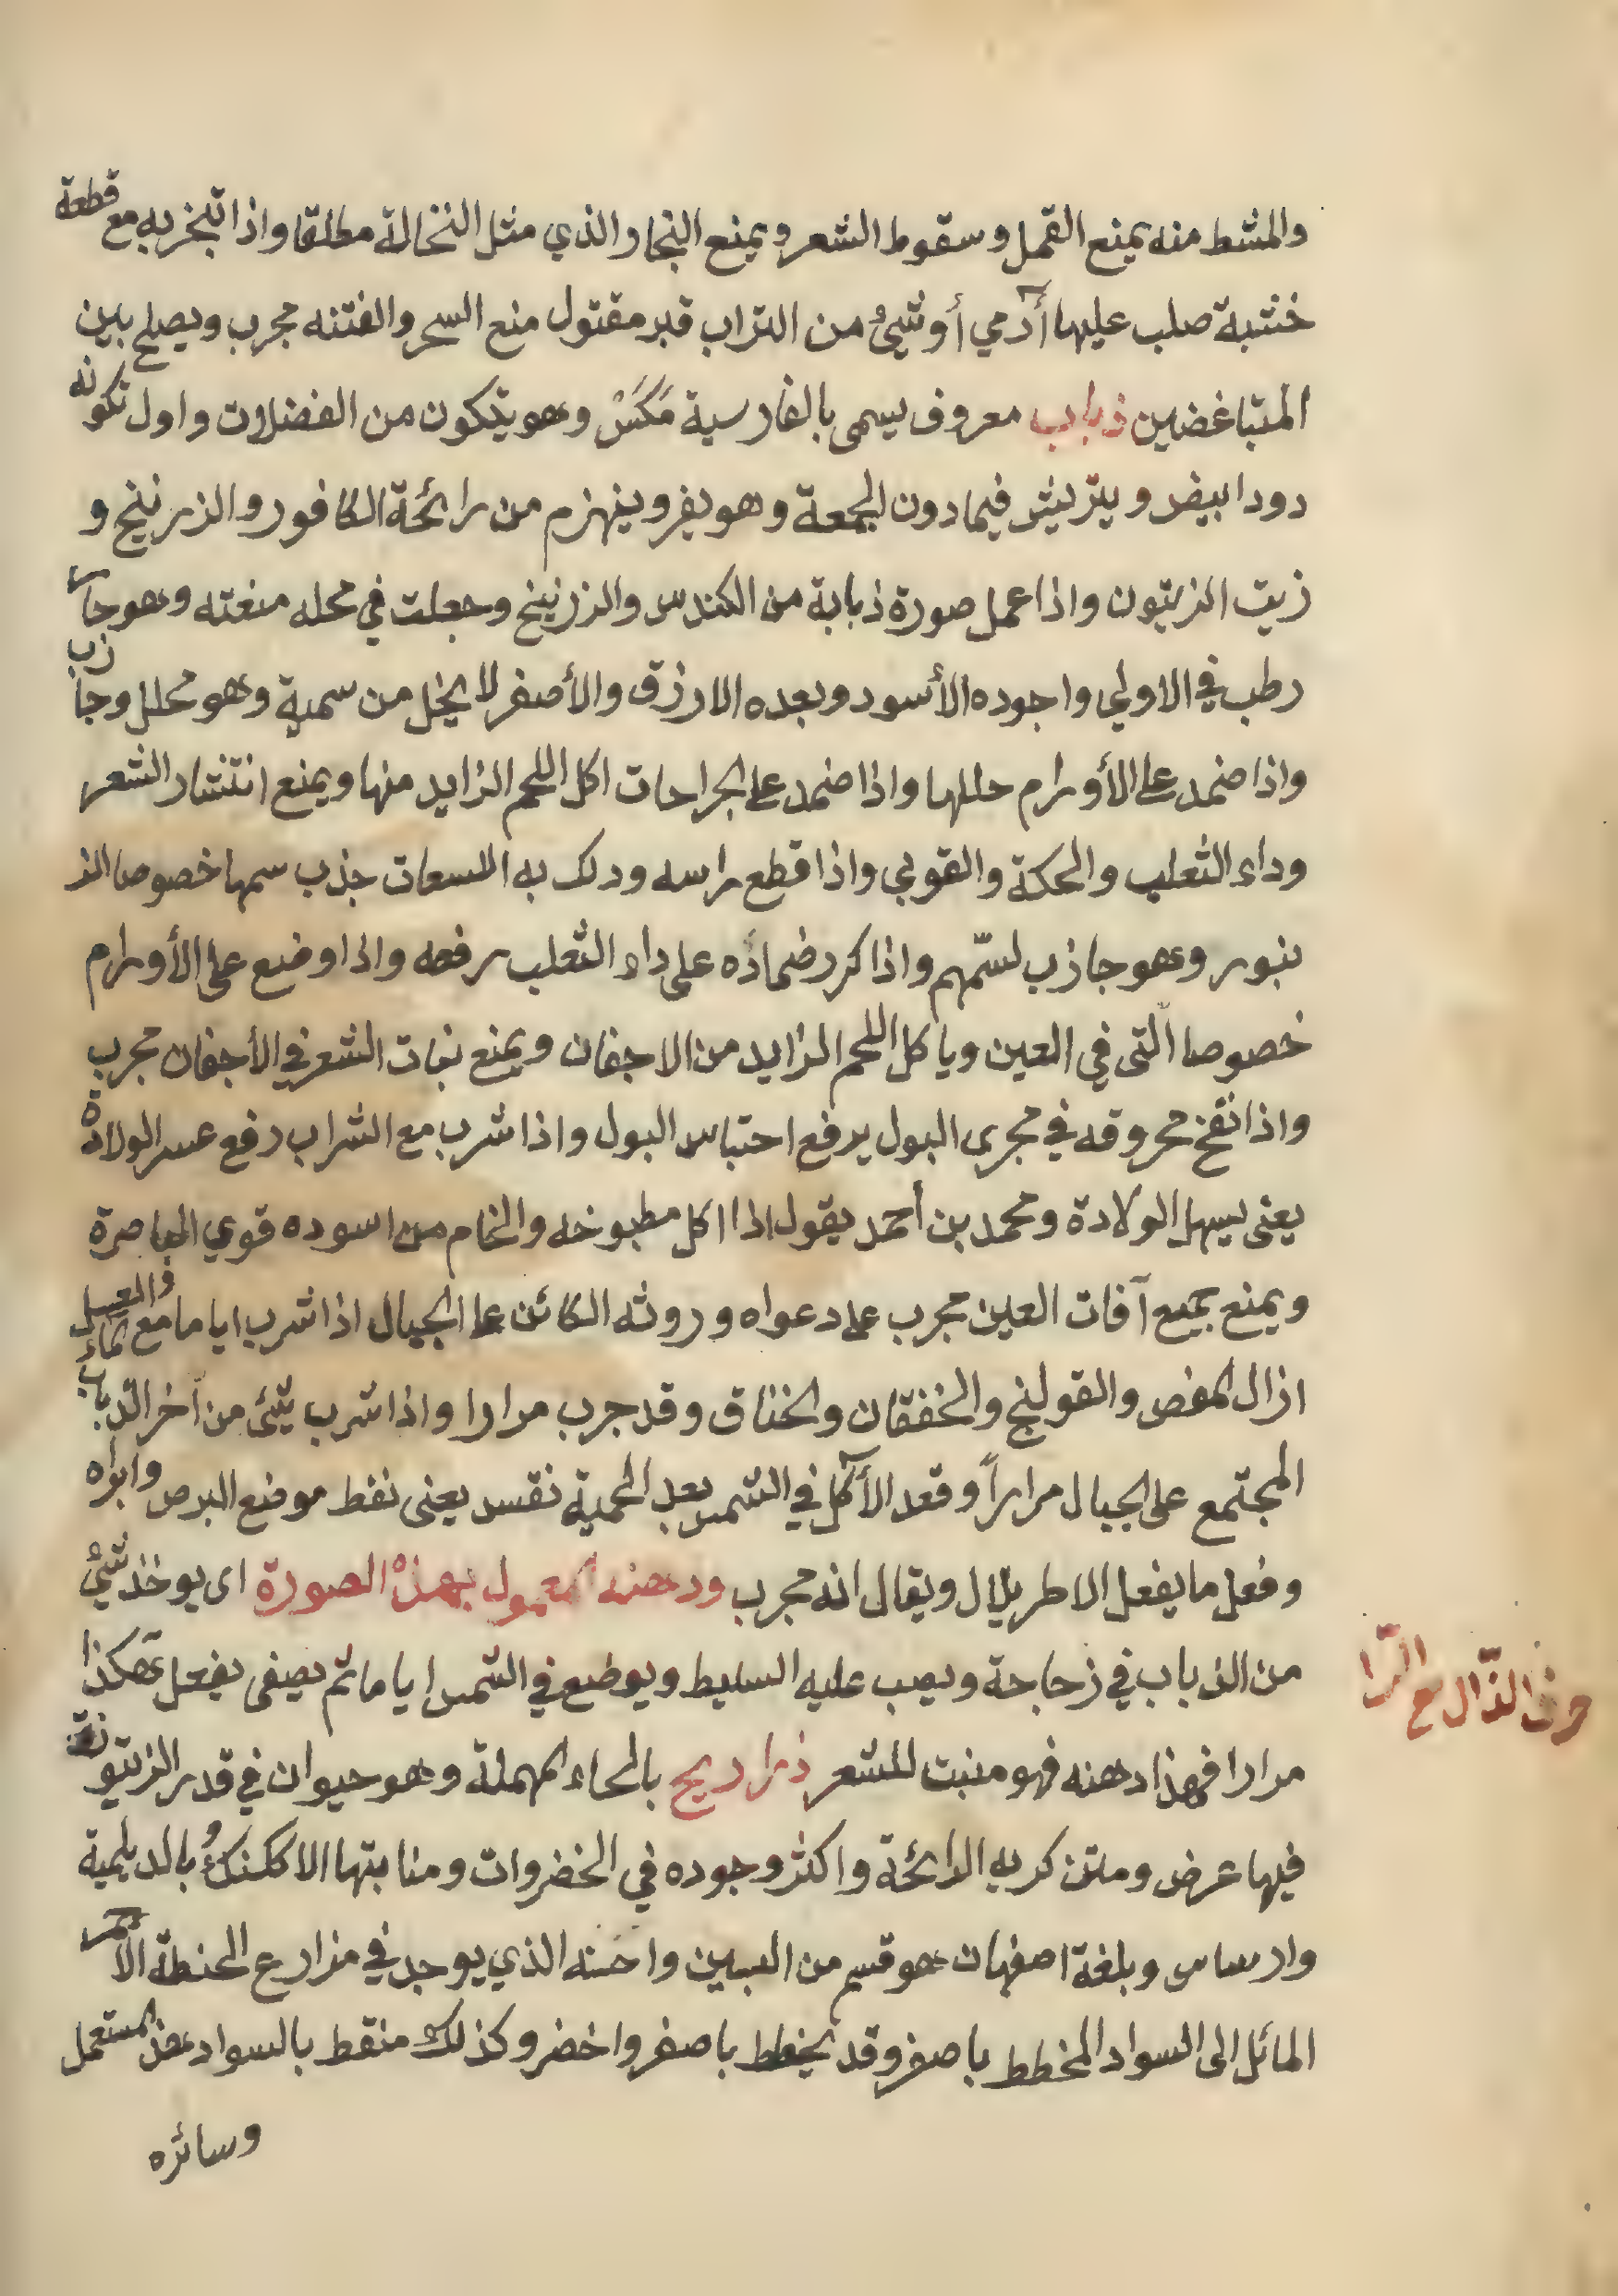 والمشط منه يمنع القمل وسقوط الشعر ويمنع البخار والذي مثل النخالة مطلقا واذا تبخر به مع قطعة
خشبة صلب عليها أدمي أو شيئ من التراب قبر مقتول منع السحر والفتنه مجرب ويصلح بين
المتباغضين ذباب معروف يسمى بالفارسية مَكَسْ وهو يتكون من الفضلات واول تكونه
دودا بيض و يتريش فيما دون الجمعة وهو يفر وينهزم من رائحة الكافور والزرنيخ و
زيت الزيتون واذا عمل صورة ذبابة من الكندس والزرنيخ وجعلت في محله منعته وهو حار
رطب في الاولي واجوده الأسود وبعده الارزق والأصفر لا يخل من سمية وهو محلل وجازب
واذا ضمد على الأورام حللها واذا ضمد على الجراحات اكل اللحم الزايد منها ويمنع انتشار الشعر
وداء الثعلب والحكة والقوبي واذا قطع راسه ودلك به السعات جذب سمها خصوصا الذ
نبور وهو جازب لسمّهم واذا كرر ضماده على داء الثعلب رفعه واذا وضع على الأورام
خصوصا الّتى في العين وياكل اللحم الزايد من الاجفان ويمنع نبات الشعر في الأجفان مجرب
واذا نفخ محروقه في مجرى البول يرفع احتباس البول واذا شرب مع الشراب رفع عسر الولادة
يعنى يسهل الولادة ومحمد بن أحمد يقول اذا اكل مطبوخه والخام من اسوده قوي الباصرة
ويمنع جميع آفات العين مجرب على دعواه وروثه الكائن على الجبال اذا شرب اياما مع الماء والعسل
ازال المغص والقولنج والخفقان والخناق وقد جرب مرارا واذا شرب شيئ من آخر الذباب
المجتمع على الجبال مراراً وقعد الأكل في الشمس بعد الحمية نقسد يعنى نفط موضع البرص وابراه
وفعل ما يفعل الاطريلال ويقال انه مجرب ودهنه المعمول بهذه الصورة اى يوخذ شيئ
من الذباب في زجاجة ويصب عليه السليط ويوضع في الشمس اياما ثم يصفى يفعل هكذا
حرف الذّال مع الرّا
مرارا فهذا دهنه فهو منبت للشعر ذراريح بالحاء المهملة وهو حيوان في قدر الزيتونة
فيها عرض ومتن كريه الرائحة واكثر وجوده في الخضروات ومنابتها الاكلنك بالديلمية
وادساس وبلغة اصفهان هو قسم من السبين واحسنه الذي يوجد في مزارع الحنطة الأحمر
المائل الى السواد المخطط باصفر وقد يخطط باصفر واخضر وكذلك منقط بالسواد هذ المستعمل
وسائره